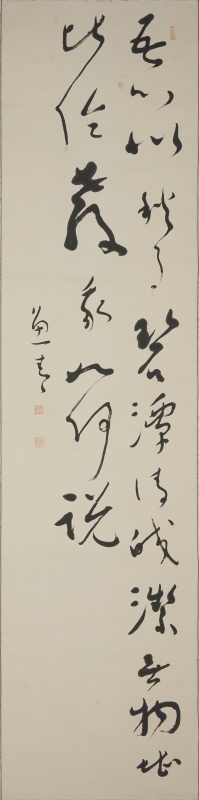 吾心似秋月碧潭清皎潔無物堪
比倫教我如何説